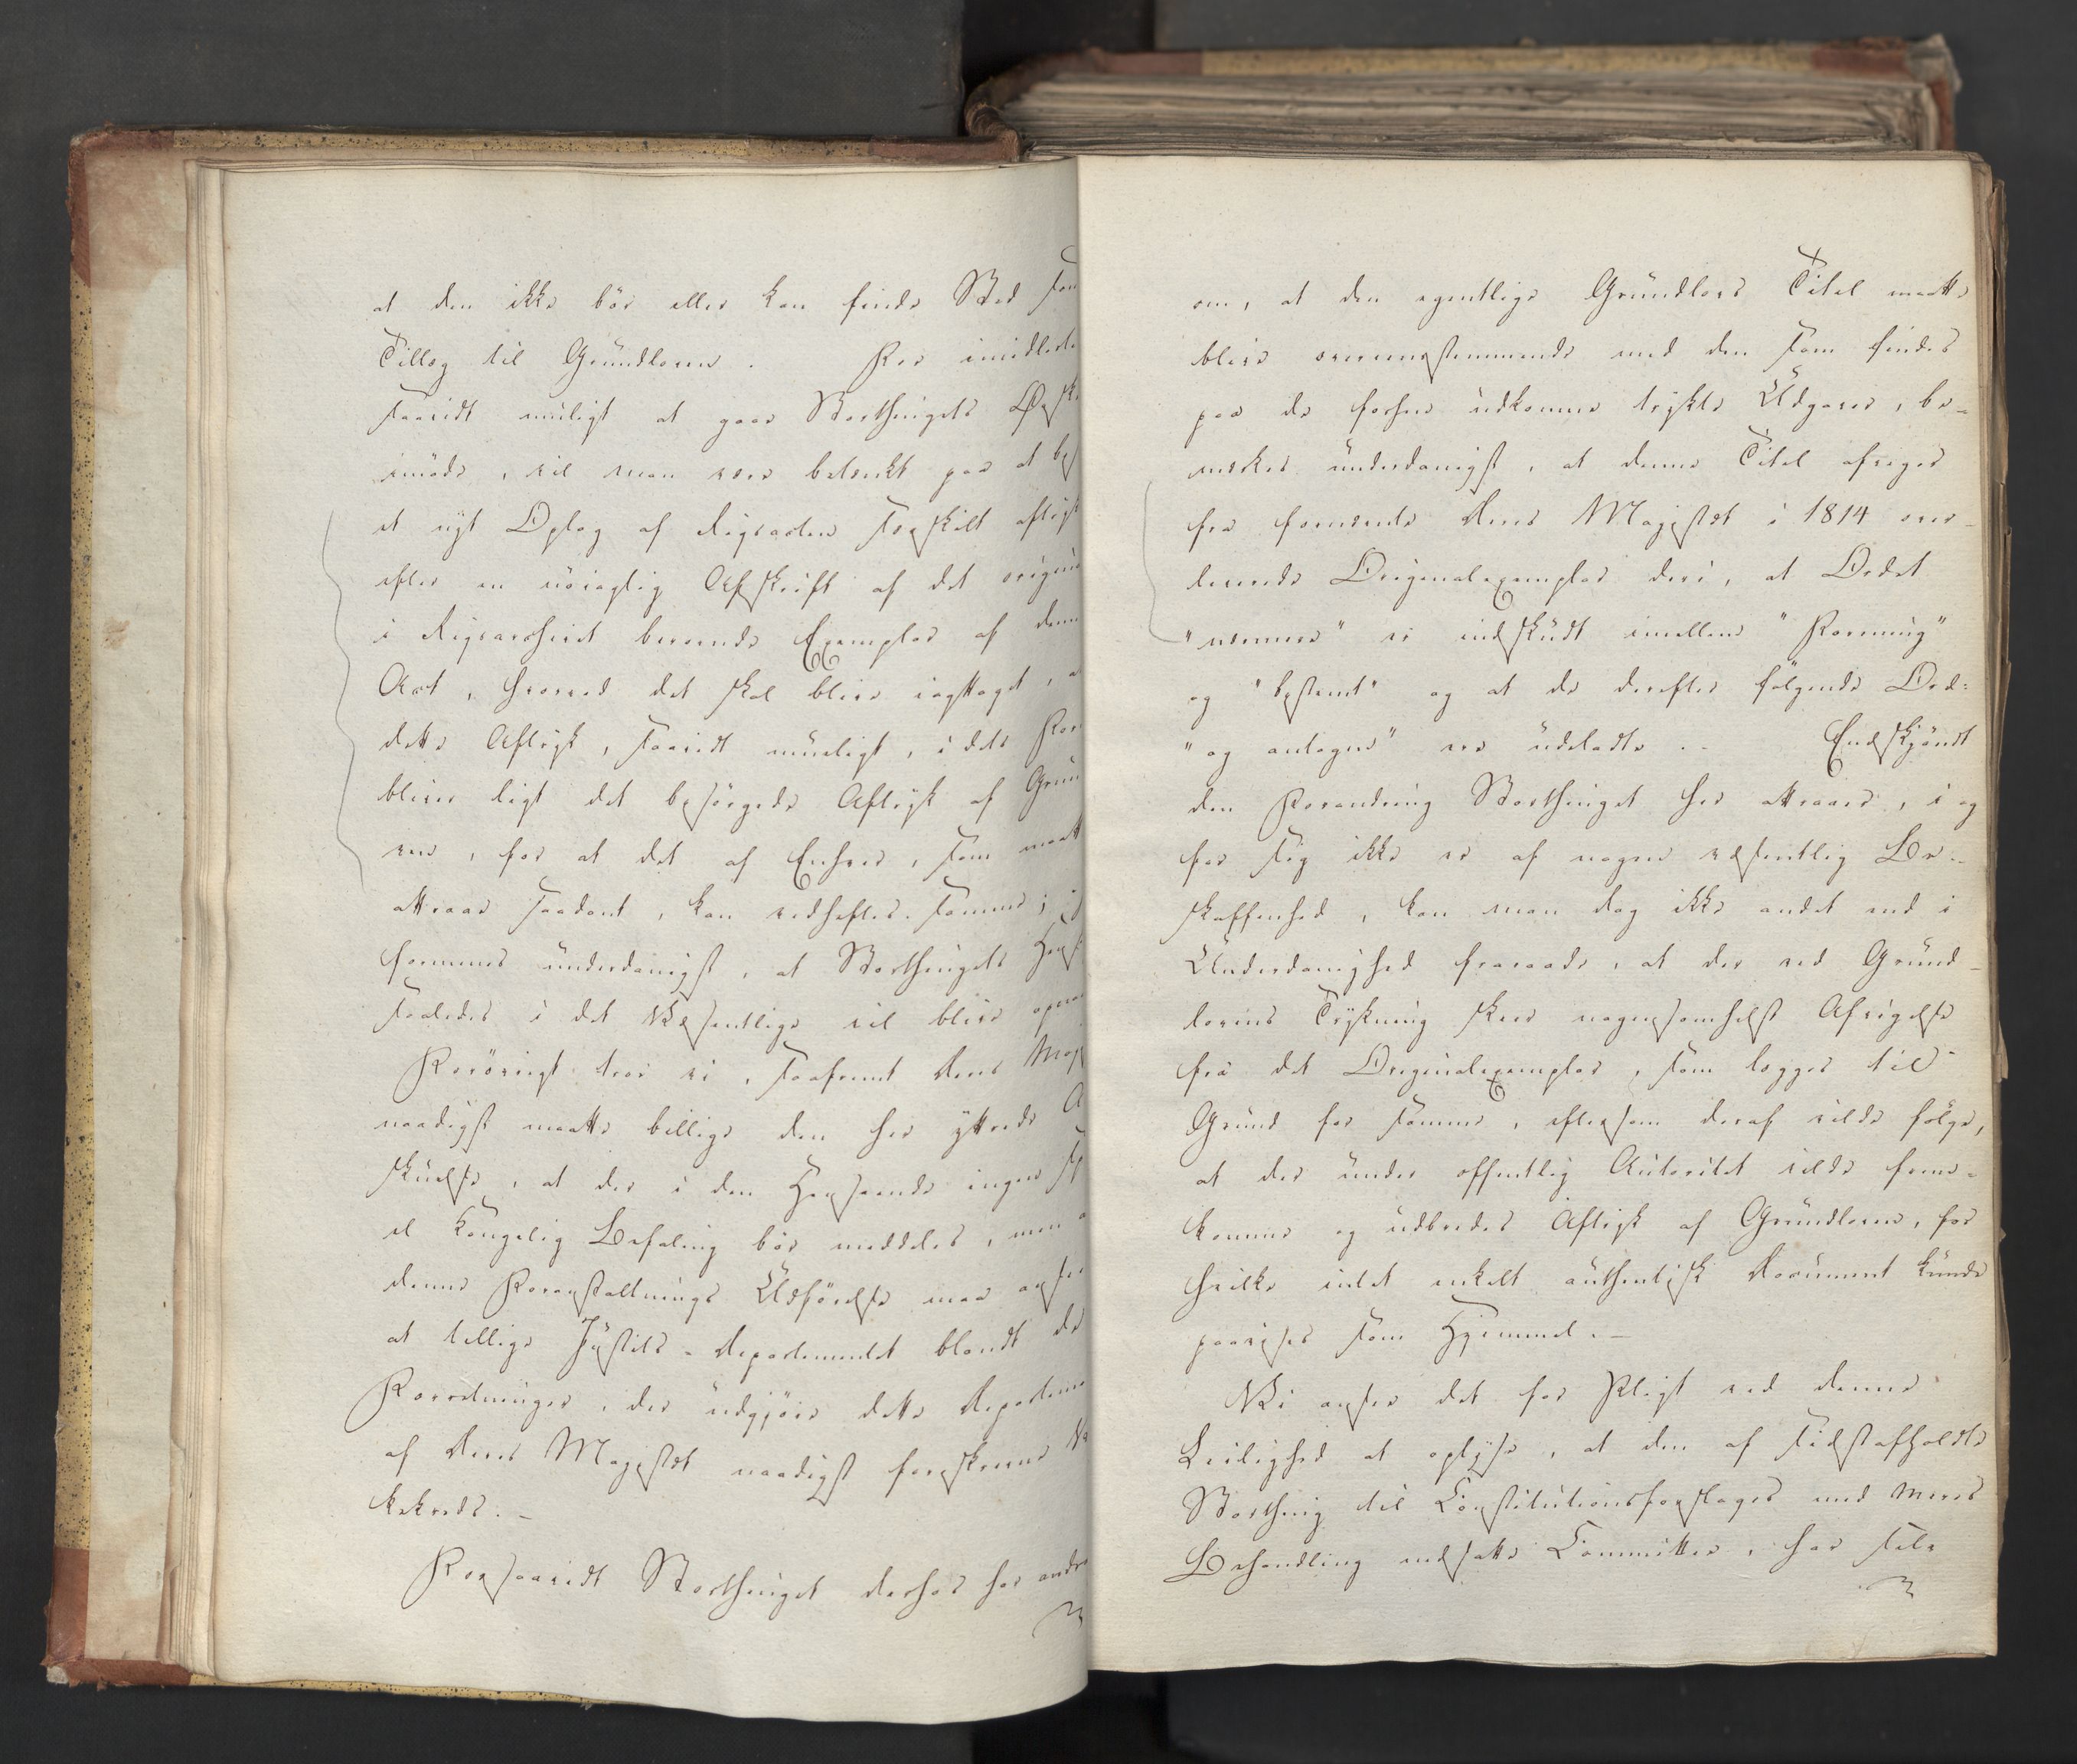 at den ikke bör eller kan finde Sted som
Tillæg til Grundloven. For imidlerti
saavidt muligt at gaae Storthingets Ønske
imöde, vil man være betænkt paa at bes
et nyt Oplag af Rigsacten særskilt aftryk
efter en nöiagtig Afskrift af det origina
i Rigsarchivet beroende Exemplar af denn
Act, hvorved det skal blive iagttaget, a
dette Aftryk, saavidt mueligt, i dets For
bliver ligt det besörgede Aftryk af Grun
ven, for at det af Enhver, som maatt
attraae saadant, kan vedheftes samme; i
formenes underdanigst, at Storthingets Hens
saaledes i det Væsentlige vil blive opna
Forövrigt troe vi, saafremt Deres Maje
naadigst maatte billige den her yttrede A
skuelse, at der i den Henseende ingen sp
el kongelig Befaling bör meddeles, men a
denne Foranstaltnings Udförelse maa ansee
at tillige Justits-Departementet blandt de
Forretninger, der udgjöre dette Departeme
af Deres Majestæt naadigst foreskrevne Vi
kekreds.-
Forsaavidt Storthinget derhos har andra
om, at den egentlige Grundlovs Titel maatte
blive overeensstemmende med den som findes
paa de forhen udkomne trykte Udgaver, be-
mærkes underdanigst, at denne Titel afviger
fra fornævnte Deres Majestæt i 1814 over-
leverede Originalexemplar deri, at Ordet
"nærmere" er indskudt imellem "Forening"
og "bestemt" og at de derefter fölgende Ord:
"og antagne" ere udeladte.- Endskjöndt
den Forandring Storthinget her attraaer, i og
for sig ikke er af nogen væsentlig Be-
skaffenhed, kan man dog ikke andet end i
Underdanighed fraraade, at der ved Grund-
lovens Trykning skeer nogensomhelst Afvigelse
fra det Originalexemplar, som lægges til
Grund for samme, eftersom deraf vilde fölge,
at der under offentlig Autoritet vilde frem-
komme og udbredes Aftryk af Grundloven, for
hvilke intet enkelt authentisk Document kunde
paavises som Hjemmel.-
Vi ansee det for Pligt ved denne
Leilighed at oplyse, at den af sidstafholdte
Storthing til Constitutionsforslages med Meres
Behandling nedsatte Committee, har selv